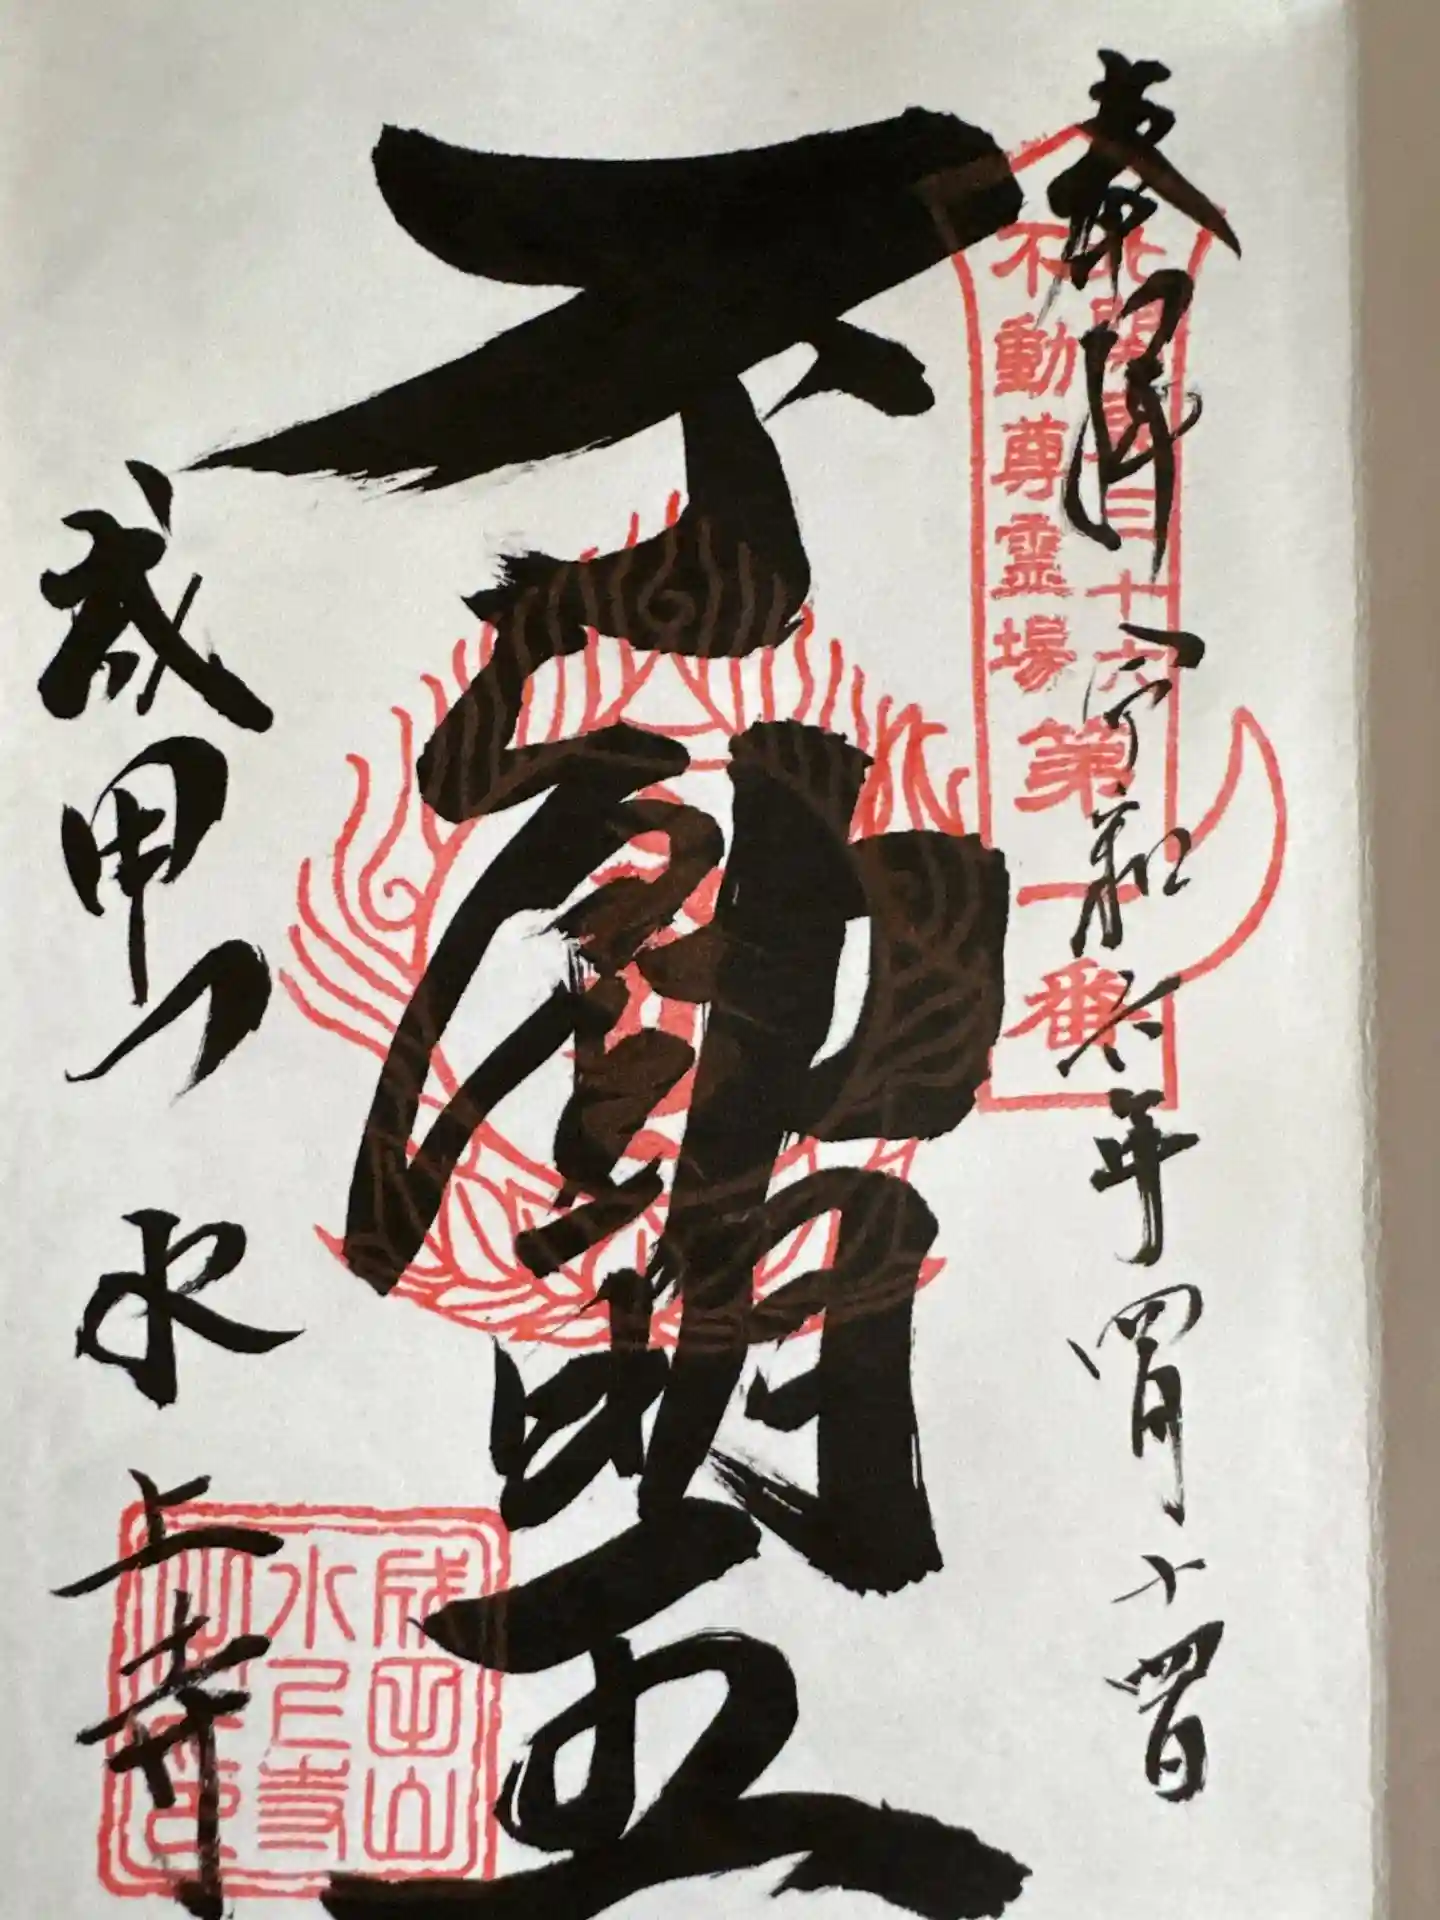 奉拝
令和六年四月十四日
北関東三十六
不動尊霊場
第一番
不動明王
成田山
水上寺
成田山
水上寺